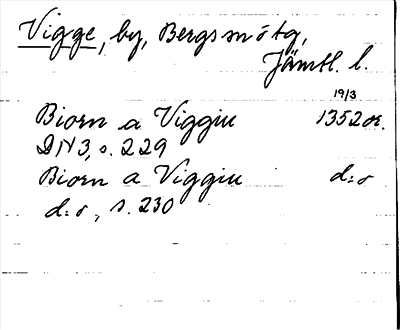 Vigge, by, Bergs sn o tg,
Jämtl. l.
19/3
Biorn a Viggiu 1352 or.
DN 3, s. 229
Biorn a Viggiu d:o
d:o, s. 230